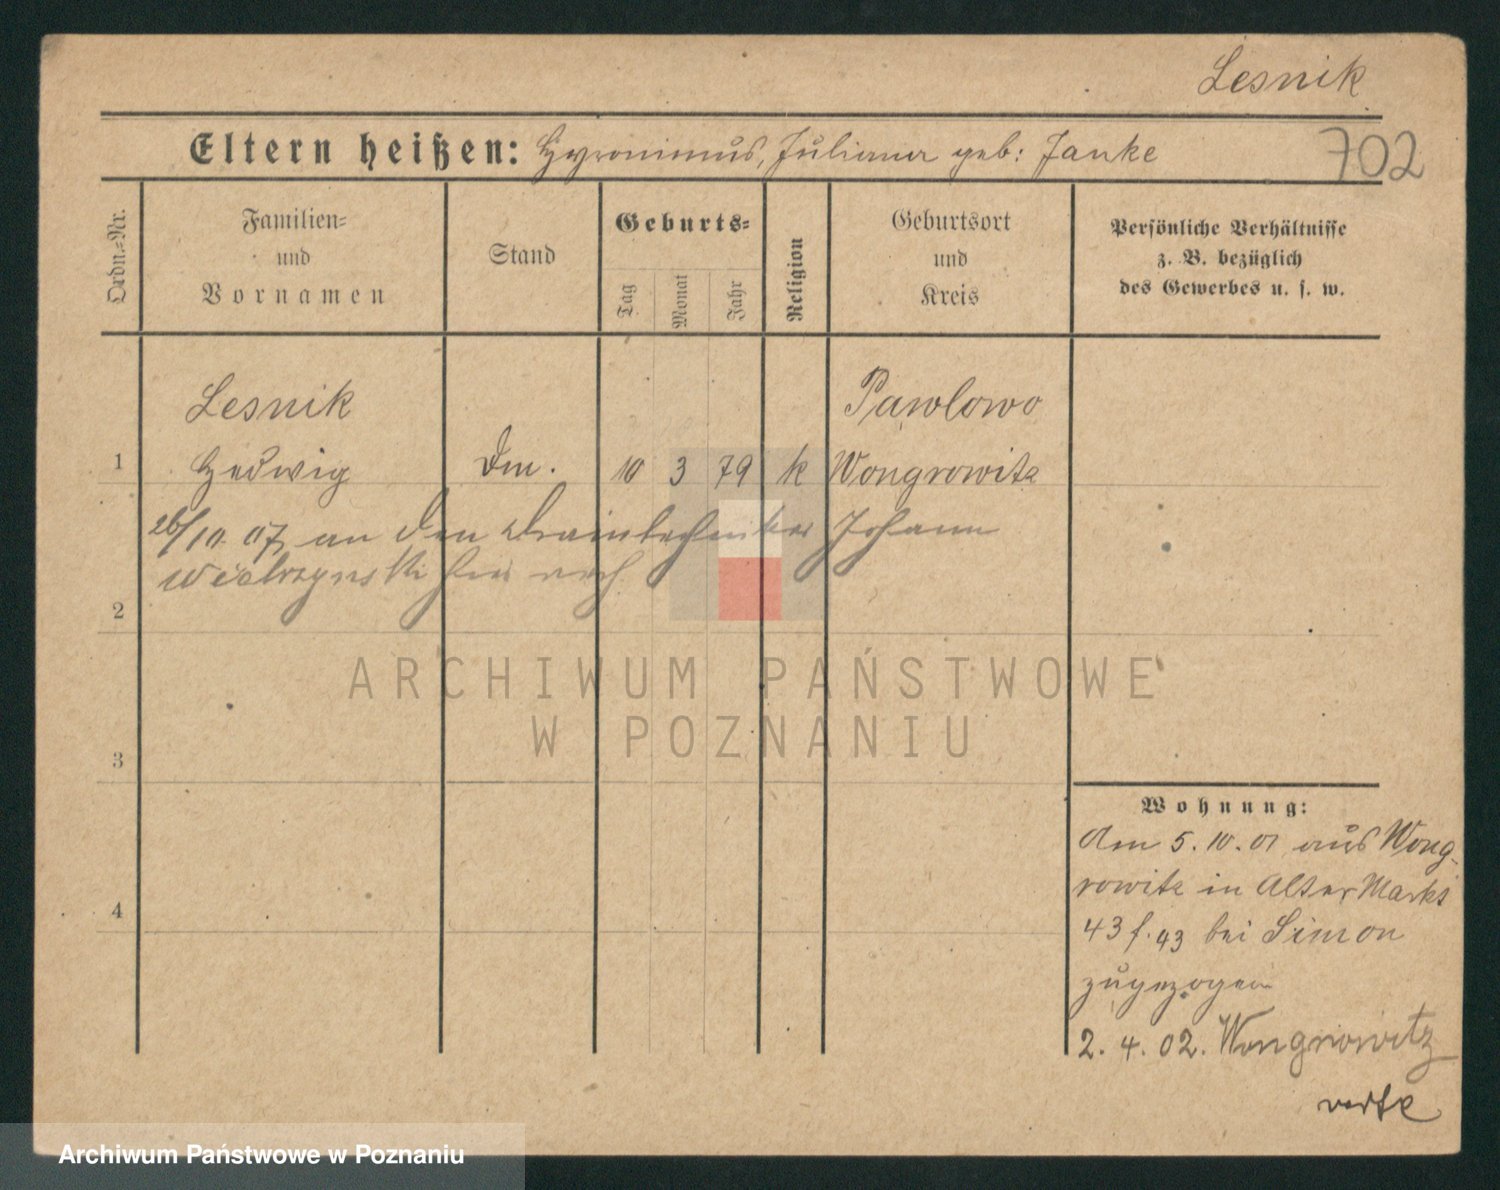 Lesnik
Eltern heißen: Hyronimus, Juliana geb: Janke
702
Ordn.=Nr.
Familien=
und
Vornamen
Stand
Geburts=
Tag
Monat
Jahr
Religion
Geburtsort
und
Kreis
Persönliche Verhältnisse
z. B. bezüglich
des Gewerbes u. s. w.
Lesnik
Pawlowo
1
Hedwig
Dm.
10
3
79
k
Wongrowitz
26/10. 07 an den Johann
2
3
4
Wohnung:
Am 5. 10. 01 aus Wong-
rowitz in Alter Markt
43 f. 43 bei Simon
zugezogen
2. 4. 02. Wongrowitz
verte
ARCHIWUM PAŃSTWOWE
W POZNANIU
Archiwum Państwowe w Poznaniu